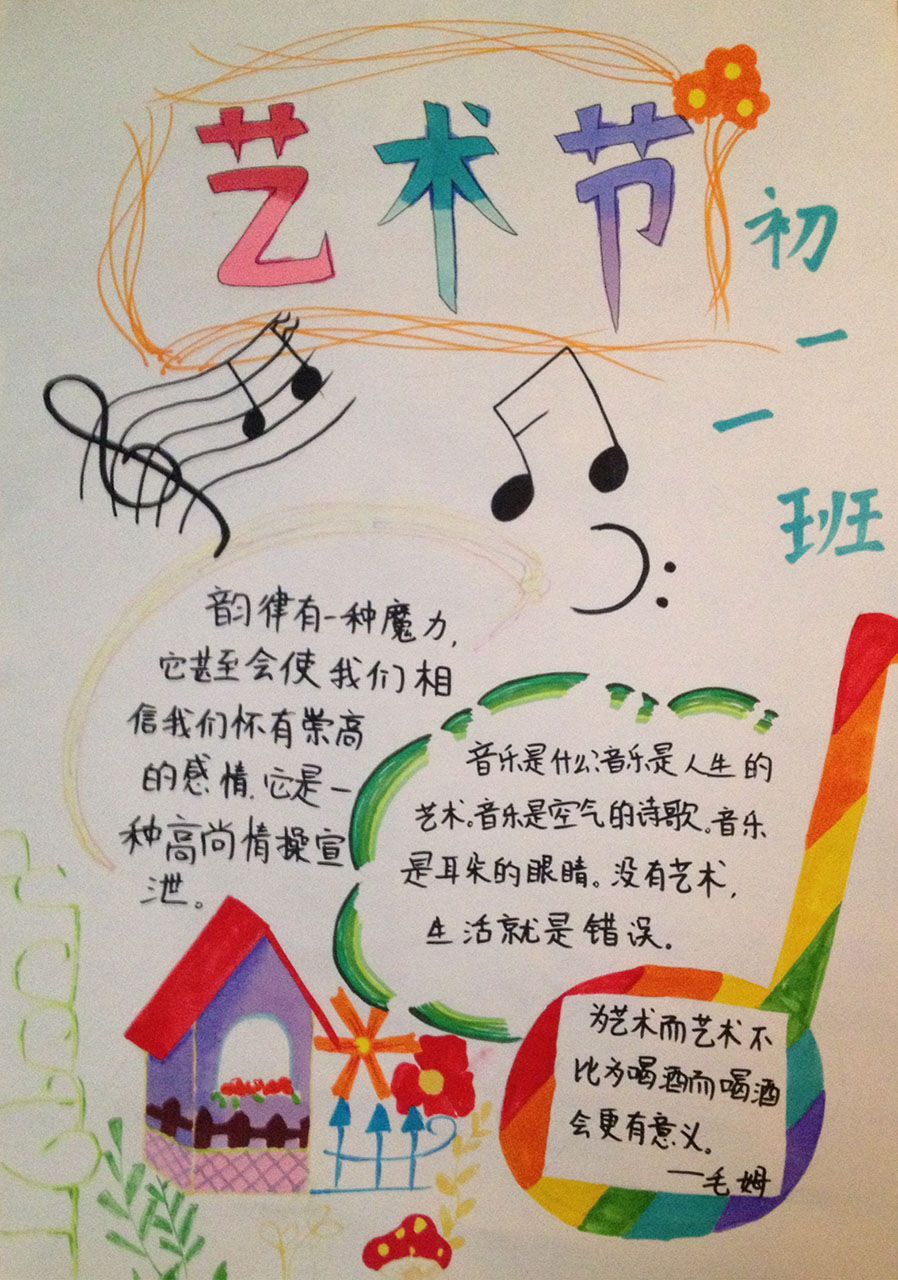 艺术节
初
一
一
班
韵律有一种魔力,
它甚至会使我们相
信我们怀有崇高
的感情.它是一
种高尚情操宣
泄。
音乐是什么:音乐是人生的
艺术。音乐是空气的诗歌。音乐
是耳朵的眼睛。没有艺术,
生活就是错误。
为艺术而艺术不
比为喝酒而喝酒
会更有意义。
——毛姆